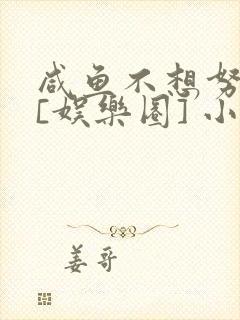 咸鱼不想努
[娱樂圈] 小
姜哥